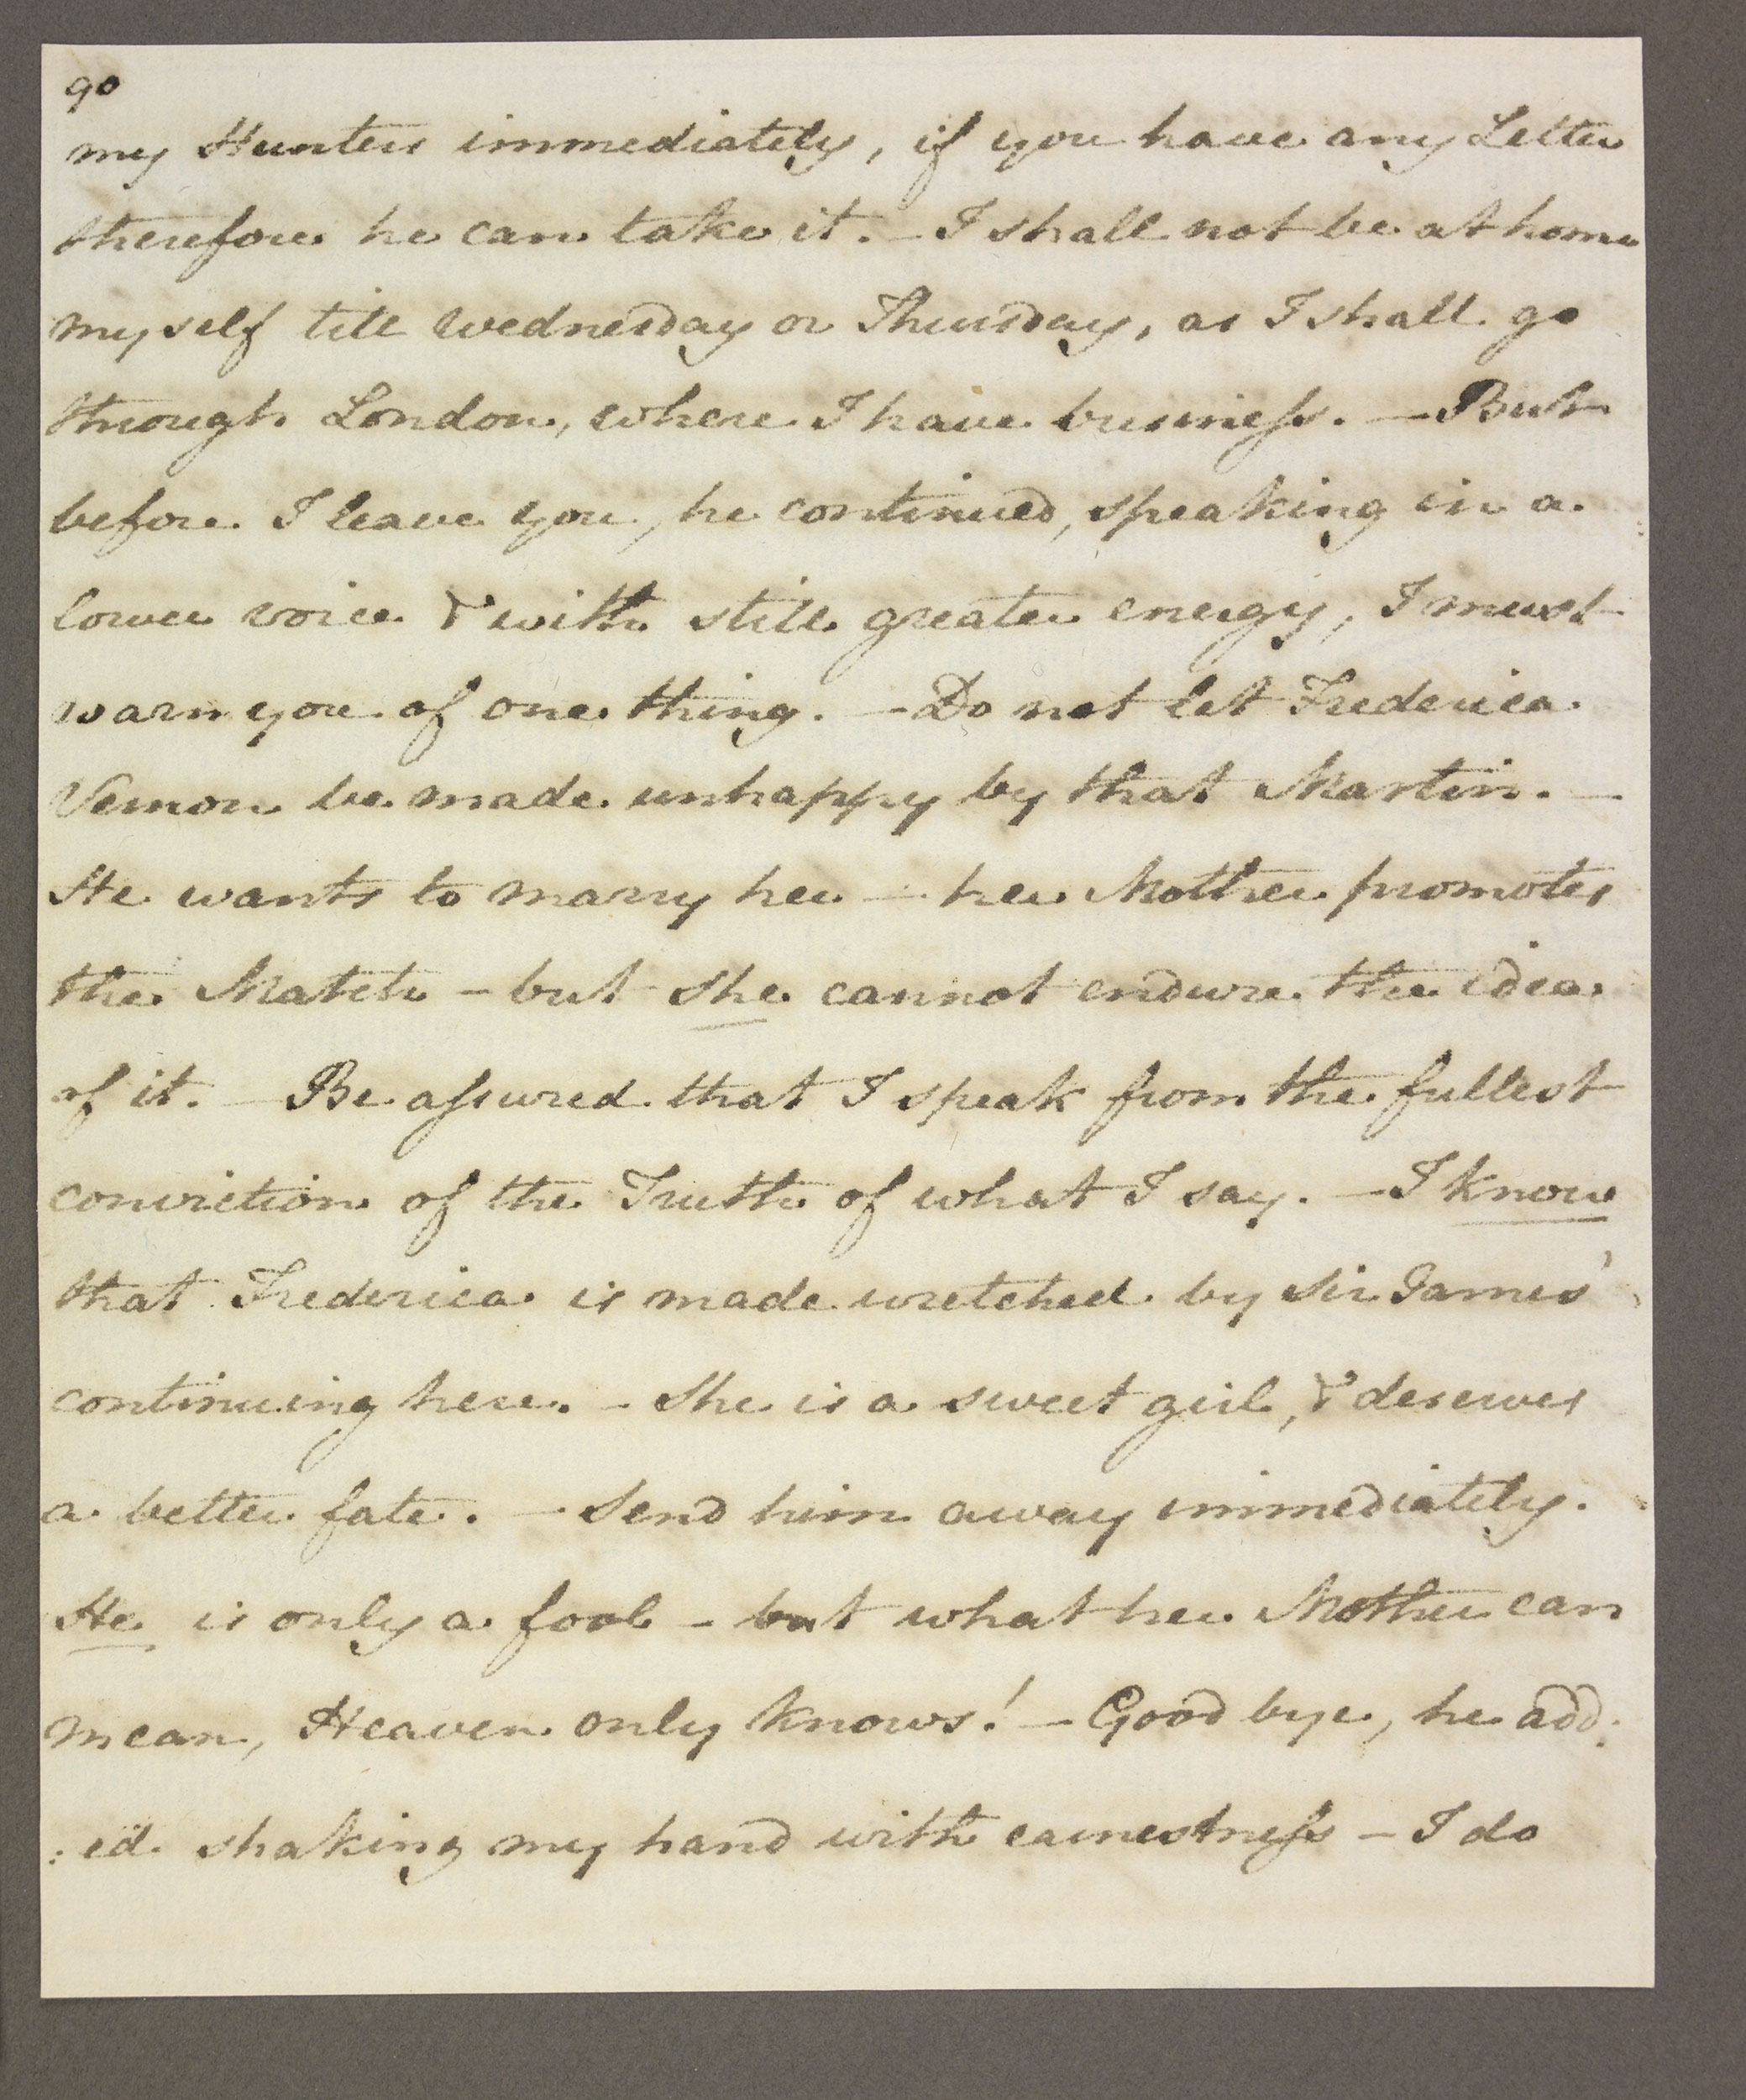 90
my Hunters immediately, if you have any Letter
therefore he can take it. — I shall not be at home
myself till Wednesday or Thursday, as I shall go
through London, where I have business. — But
before I leave you, he continued, speaking in a
lower voice & with still greater energy, I must
warn you of one thing. — Do not let Frederica
Vernon be made unhappy by that Martin. —
He wants to marry her — her Mother promotes
the Match — but she cannot endure the idea
of it. — Be assured that I speak from the fullest
conviction of the Truth of what I say. — I know
that Frederica is made wretched by Sir James'
continuing here. — She is a sweet girl, & deserves
a better fate. — Send him away immediately.
He is only a fool — but what her Mother can
mean, Heaven only knows! — Good bye, he add:
:ed shaking my hand with earnestness — I do